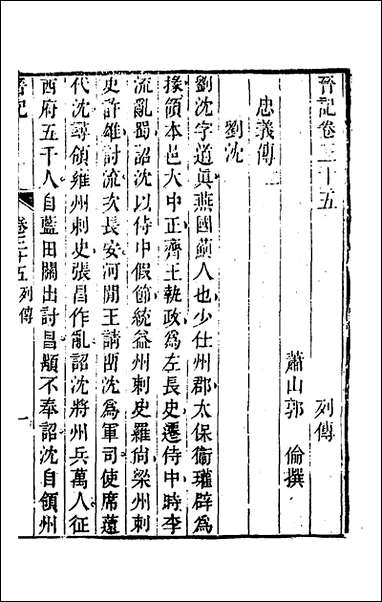 晉記卷三十五　列傳
蕭山郭　倫撰
忠義傳
劉沈
劉沈字道眞燕國薊人也少仕州郡太保衞瓘辟爲
掾領本邑大中正齊王執政爲左長史遷侍中時李
流亂蜀詔沈以侍中假節統益州刺史羅尙梁州刺
史許雄討流次長安河閒王請留沈爲軍司使席薳
代沈尋領雍州刺史張昌作亂詔沈將州兵萬人征
西府五千人自藍田關出討昌顒不奉詔沈自領州
晉記
卷三十五　列傳
一